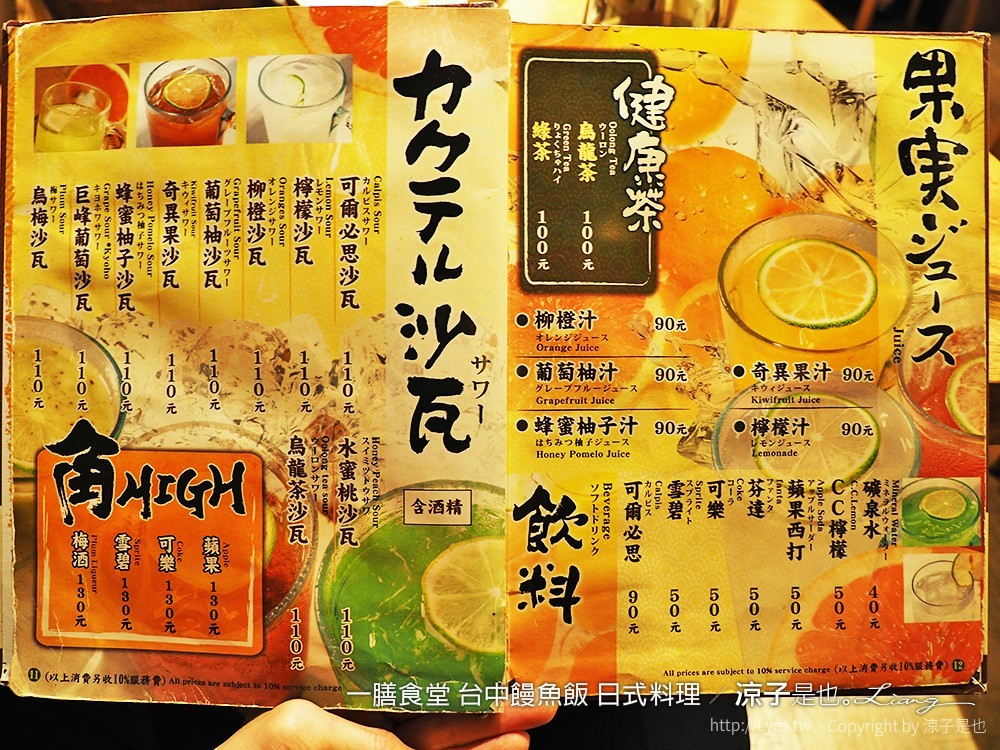 カクテル沙瓦
サワー
含酒精
Calpis Sour
カルピスサワー
可爾必思沙瓦
110元
Lemon Sour
レモンサワー
檸檬沙瓦
110元
Oranges Sour
オレンジサワー
柳橙沙瓦
110元
Grapefruit Sour
グレープフルーツサワー
葡萄柚沙瓦
110元
Kiwifruit Sour
キウィサワー
奇異果沙瓦
110元
Honey Pomelo Sour
はちみつ柚子サワー
蜂蜜柚子沙瓦
110元
Grape Sour *Kyoho
キヨホウサワー
巨峰葡萄沙瓦
110元
Plum Sour
梅サワー
烏梅沙瓦
110元
Honey Peach Sour
スイミツトウサワ
水蜜桃沙瓦
110元
Oolong tea sour
ウーロンサワー
烏龍茶沙瓦
110元
角HIGH
Apple
蘋果
130元
Coke
可樂
130元
Sprite
雪碧
130元
Plum Liqueur
梅酒
130元
11 (以上消費另收10%服務費) All prices are subject to 10% service charge
果実ジュース
Juice
健康茶
Oolong Tea
ウーロン
烏龍茶
100元
Green Tea
りょくちゃハイ
綠茶
100元
●柳橙汁 90元
オレンジジュース
Orange Juice
●葡萄柚汁 90元
グレープフルージュース
Grapefruit Juice
●蜂蜜柚子汁 90元
はちみつ柚子ジュース
Honey Pomelo Juice
●奇異果汁 90元
キウィジュース
Kiwifruit Juice
●檸檬汁 90元
レモンジュース
Lemonade
飲料
Beverage
ソフトドリンク
Mineral Water
ミネラルウォーター
礦泉水
40元
C.C Lemon
CC檸檬
50元
Apple Soda
アップルサーダー
蘋果西打
50元
fanta
ファンタ
芬達
50元
Coke
コーラ
可樂
50元
Sprite
スプライト
雪碧
50元
Calpis
カルピス
可爾必思
90元
All prices are subject to 10% service charge (以上消費另收10%服務費) 12
一膳食堂 台中饅魚飯 日式料理 / 涼子是也。Liang
http://Lyes.tw Copyright by 涼子是也